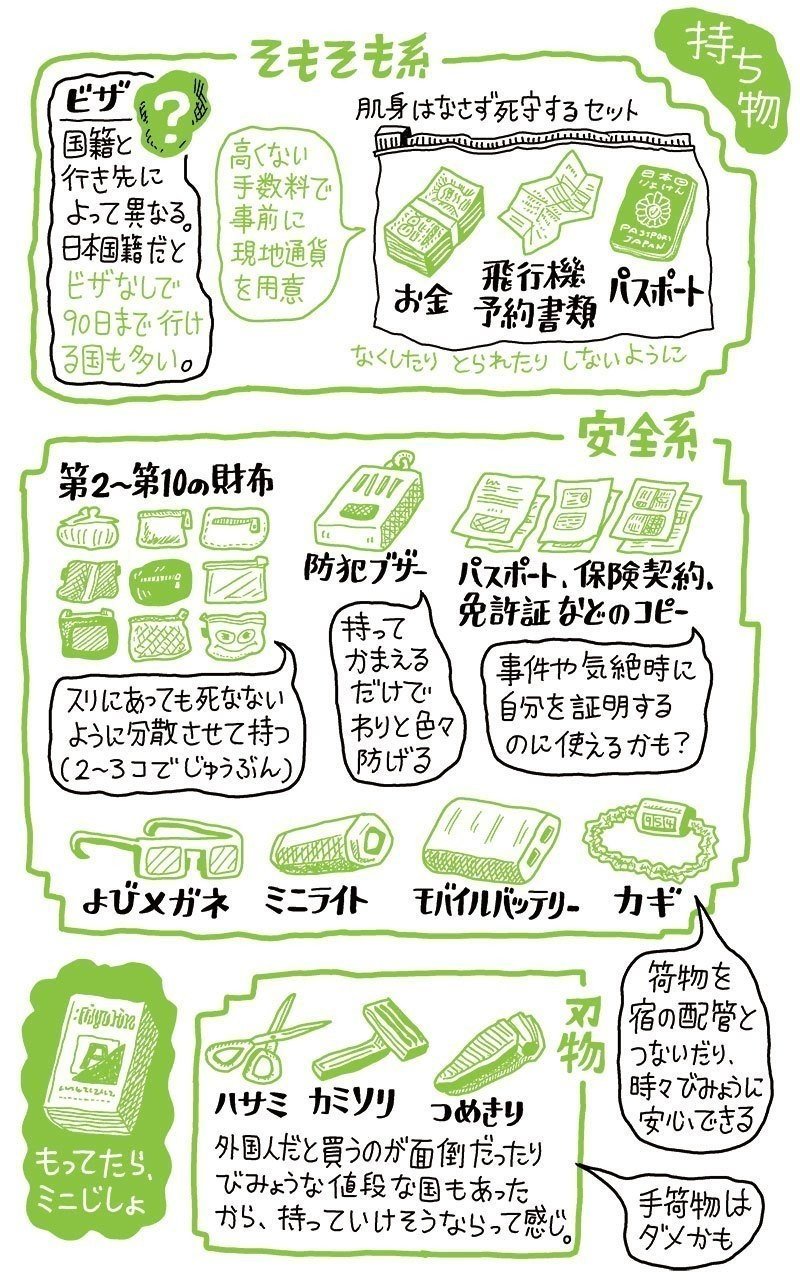 持ち物
そもそも系
ビザ
?
国籍と
行き先に
よって異なる。
日本国籍だと
ビザなしで
90日まで行け
る国も多い。
高くない
手数料で
事前に
現地通貨
を用意
肌身はなさず死守するセット
お金
飛行機
予約書類
日本国
りょけん
PASSPORT
JAPAN
パスポート
なくしたり とられたり しないように
安全系
第2〜第10の財布
スリにあっても死なない
ように分散させて持つ
(2〜3コでじゅうぶん)
防犯ブザー
持って
かまえる
だけで
わりと色々
防げる
パスポート、保険契約、
免許証などのコピー
事件や気絶時に
自分を証明する
のに使えるかも?
よびメガネ
ミニライト
モバイルバッテリー
9514
カギ
荷物を
宿の配管と
つないだり、
時々びみょうに
安心できる
A
もってたら、
ミニじしょ
刃物
ハサミ
カミソリ
つめきり
外国人だと買うのが面倒だったり
びみょうな値段な国もあった
から、持っていけそうならって感じ。
手荷物は
ダメかも